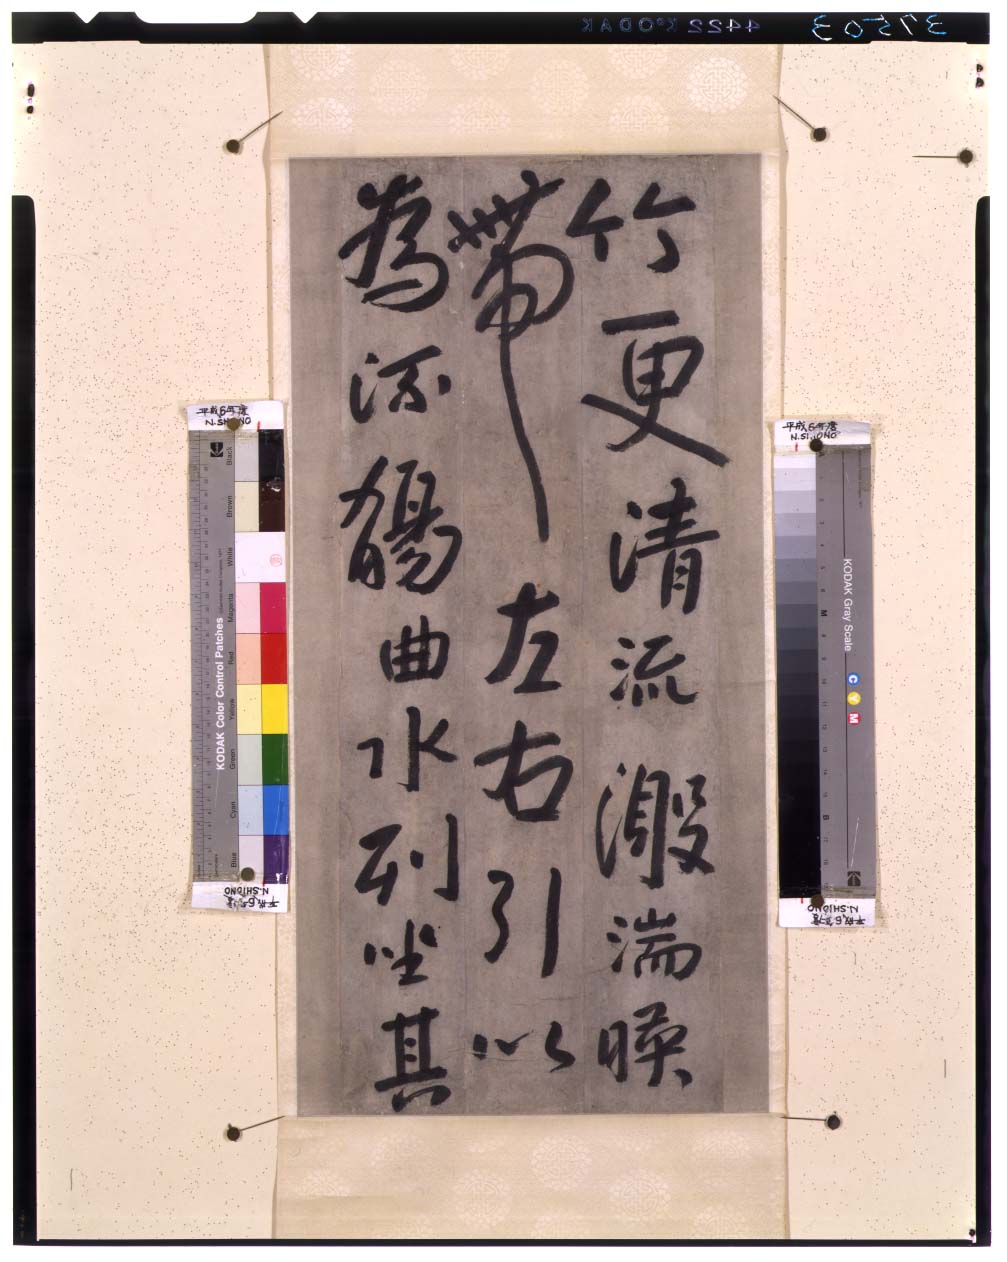 37503
4422 KODAK
竹更清流激湍暎
帶左右引以
為流觴曲水列坐其
平成6年度
N.SHIONO
KODAK Color Control Patches
Black
Brown
White
Magenta
Red
Yellow
Green
Cyan
Blue
平成6年度
N.SHIONO
平成6年度
N.SHIONO
KODAK Gray Scale
C Y M
M
B
平成6年度
N.SHIONO